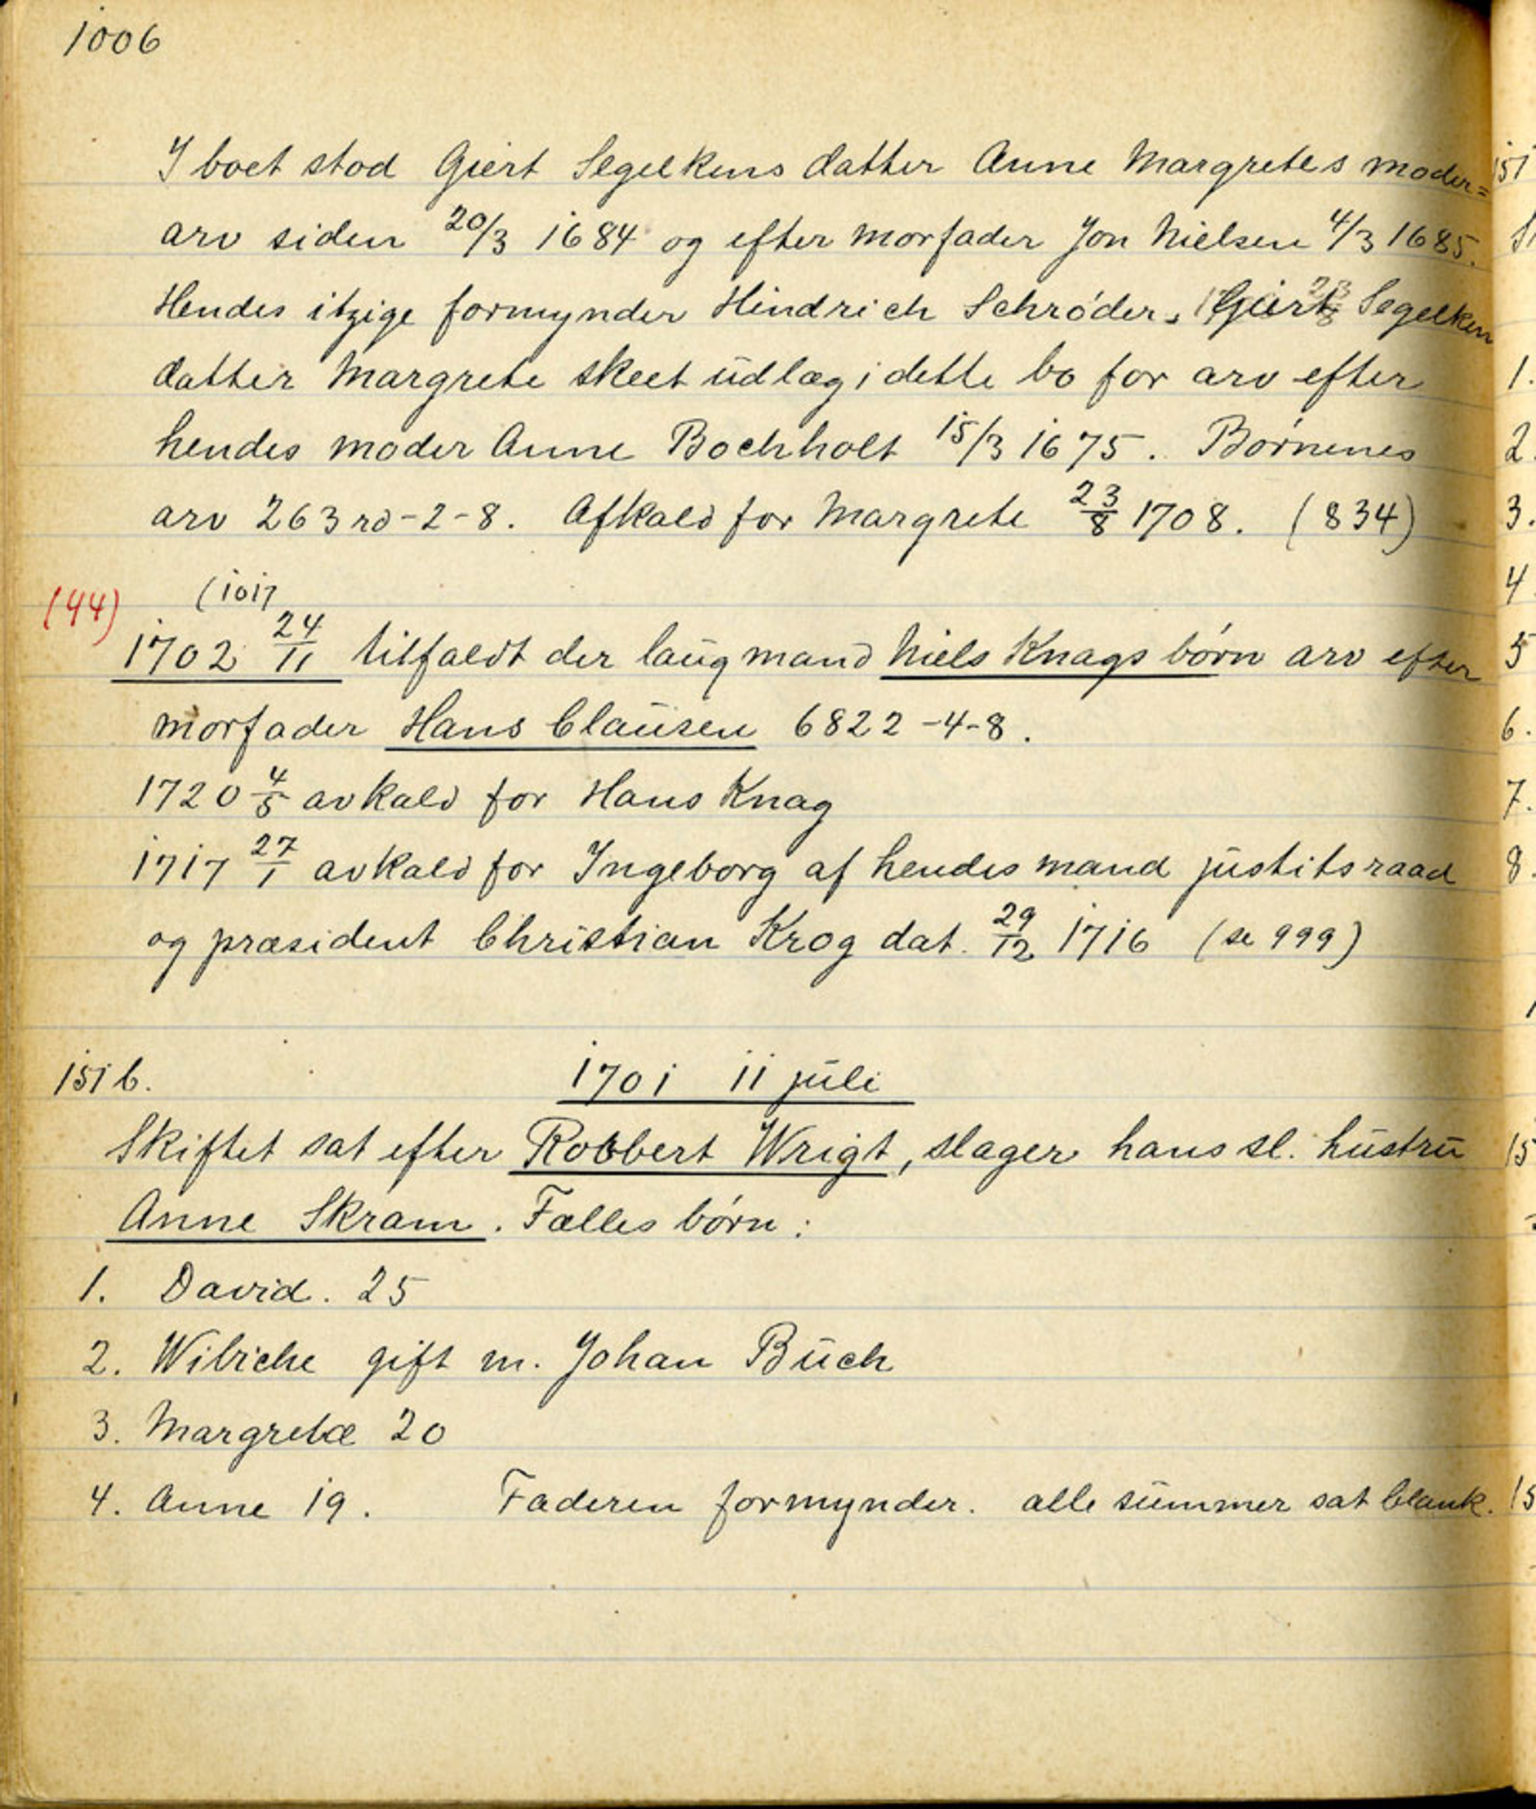 1006
I boet stod Giert Segelkens datter Anne Margretes moder=
arv siden 20/3 1684 og efter morfader Jon Nielsen 4/3 1685.
Hendes itzige formynder Hindrich Schrøder, Giert Segelken
datter Margrete skeet udlæg i dette bo for arv efter
hendes moder Anne Bochholt 15/3 1675. Børnenes
arv 263 rd-2-8. Afkald for Margrete 23/8 1708. (834)
(1017
(44)
1702 24/11 tilfaldt der laugmand Niels Knags børn arv efter
morfader Hans Clausen 6822-4-8.
1720 4/5 avkald for Hans Knag
1717 27/1 avkald for Ingeborg af hendes mand justitsraad
og præsident Christian Krog dat. 29/12 1716 (se 999)
151 b. 1701 11 juli
Skiftet sat efter Robbert Wrigt, slager hans sl. hustru
Anne Skram. Fælles børn:
1. David. 25
2. Wibiche gift m. Johan Buch
3. Margretæ 20
4. Anne 19. Faderen formynder. alle summer sat blank.